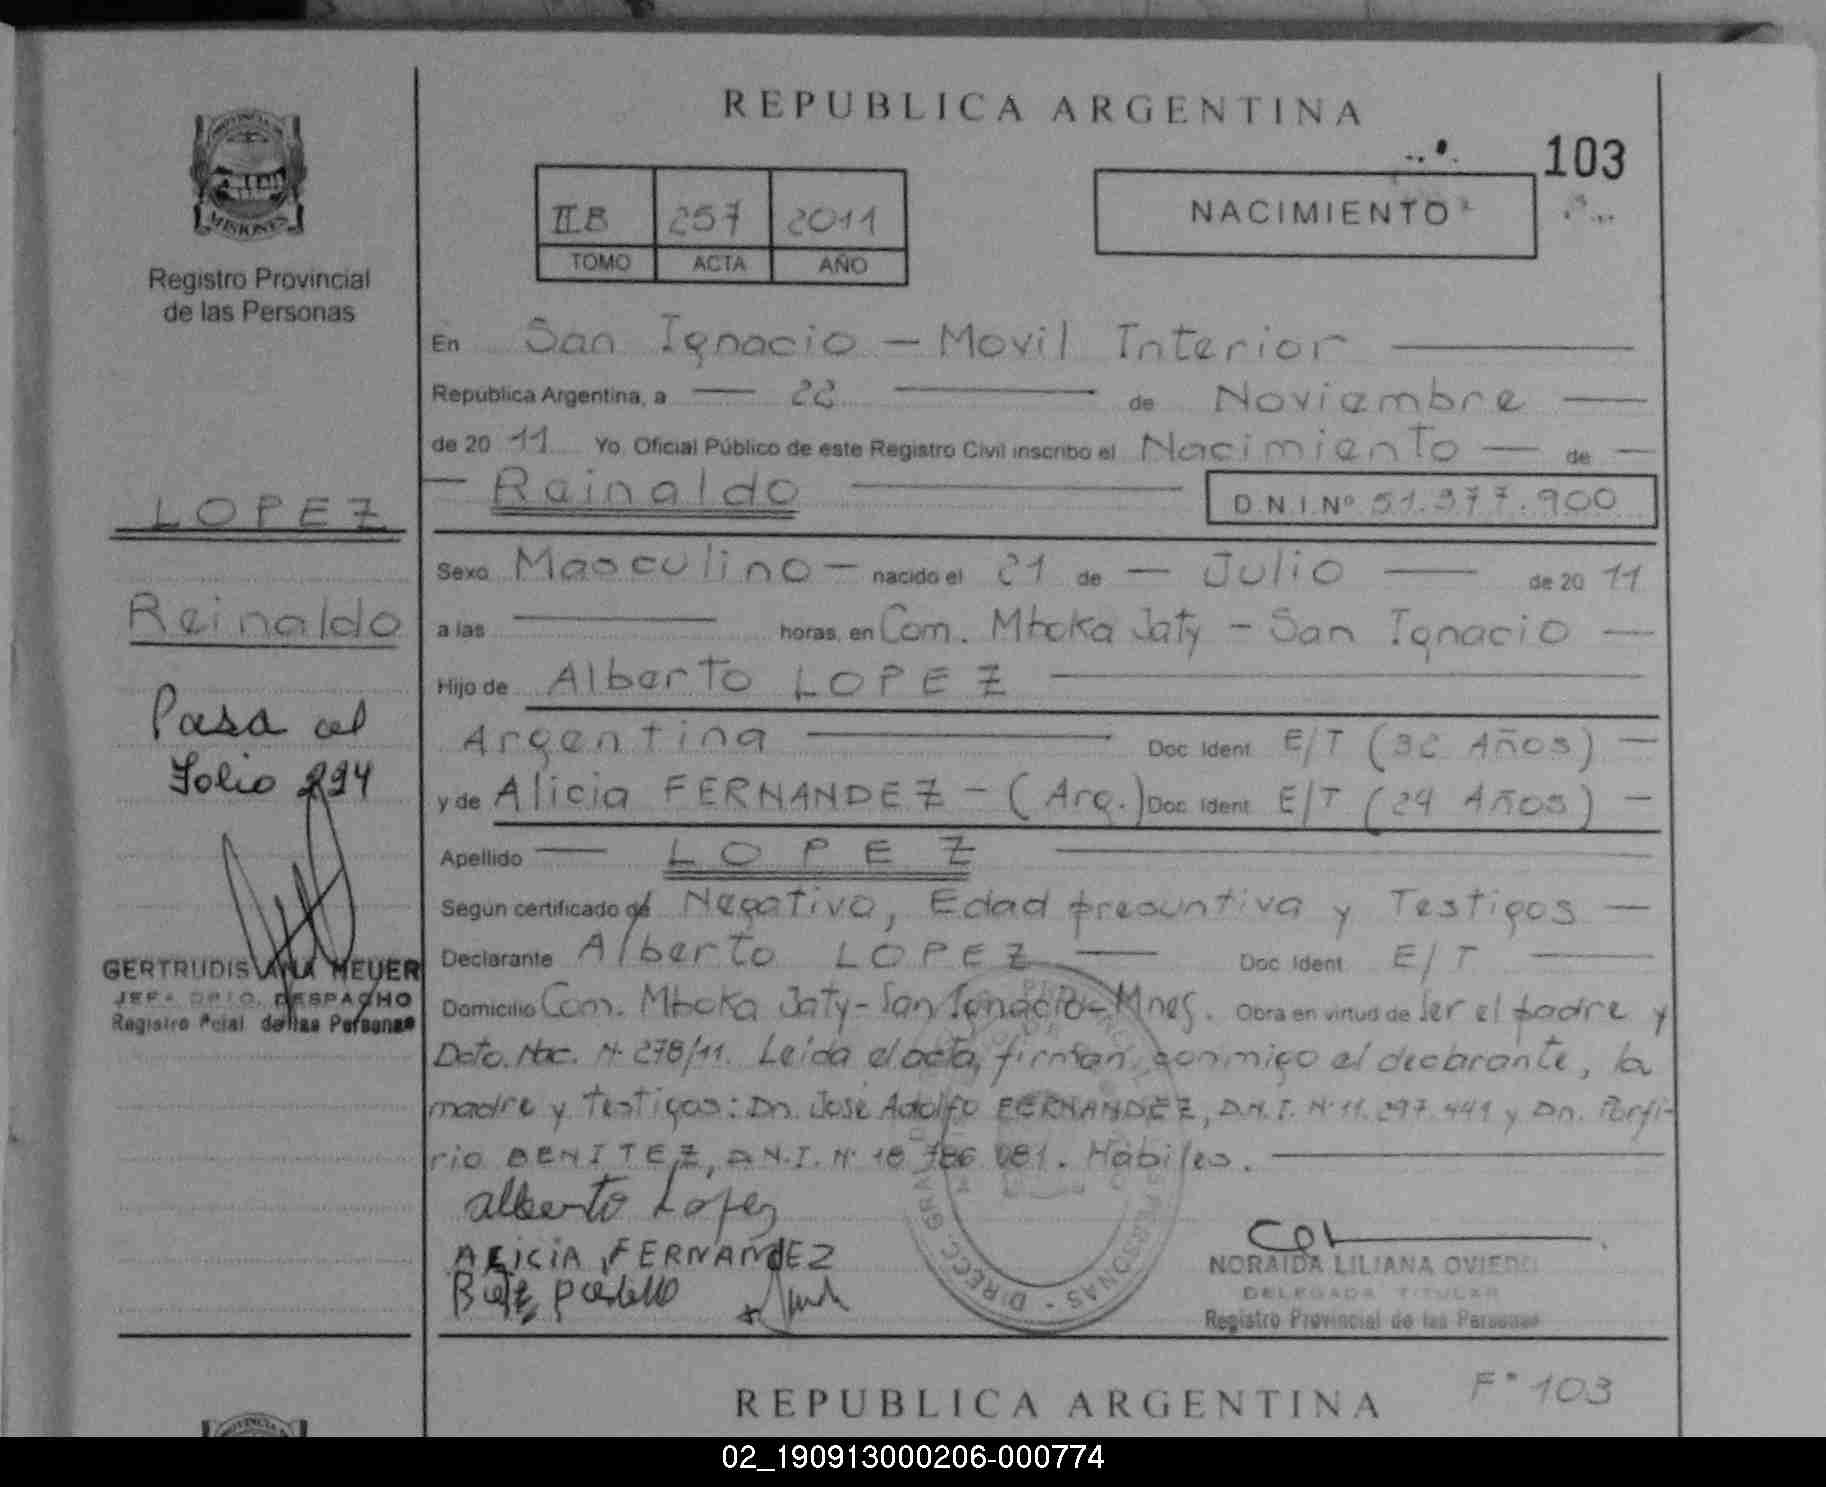 REPUBLICA ARGENTINA
103
PROVINCIA DE
MISIONES
Registro Provincial
de las Personas
II B 257 2011
TOMO ACTA AÑO
NACIMIENTO
En San Ignacio - Movil Interior
República Argentina, a 22 de Noviembre
de 20 11 Yo, Oficial Público de este Registro Civil inscribo el Nacimiento de
Reinaldo
D.N.I.Nº 51.377.900
LOPEZ
Reinaldo
Pasa al
Folio 294
GERTRUDIS ANA MEUER
JEFA DPTO. DESPACHO
Registro Pcial. de las Personas
Sexo Masculino - nacido el 21 de Julio de 20 11
a las horas, en Com. Mboka Jaty - San Ignacio
Hijo de Alberto LOPEZ
Argentina Doc. Ident. E/T (32 Años)
y de Alicia FERNANDEZ - (Arg.) Doc. Ident. E/T (24 Años)
Apellido LOPEZ
Según certificado de Negativo, Edad presuntiva y Testigos
Declarante Alberto LOPEZ Doc. Ident. E/T
Domicilio Com. Mboka Jaty - San Ignacio - Mnes. Obra en virtud de Ser el padre y
Dcto. Nac. Nº 278/11. Leída el acta, firman conmigo el declarante, la
madre y testigos: Dn. José Adolfo FERNANDEZ, D.N.I. Nº 11.297.441 y Dn. Porfi-
rio BENITEZ, D.N.I. Nº 18.786.081. Hábiles.
alberto Lopez
ALICIA FERNANDEZ
NORAIDA LILIANA OVIEDO
DELEGADA TITULAR
Registro Provincial de las Personas
REPUBLICA ARGENTINA
Fº 103
02_190913000206-000774